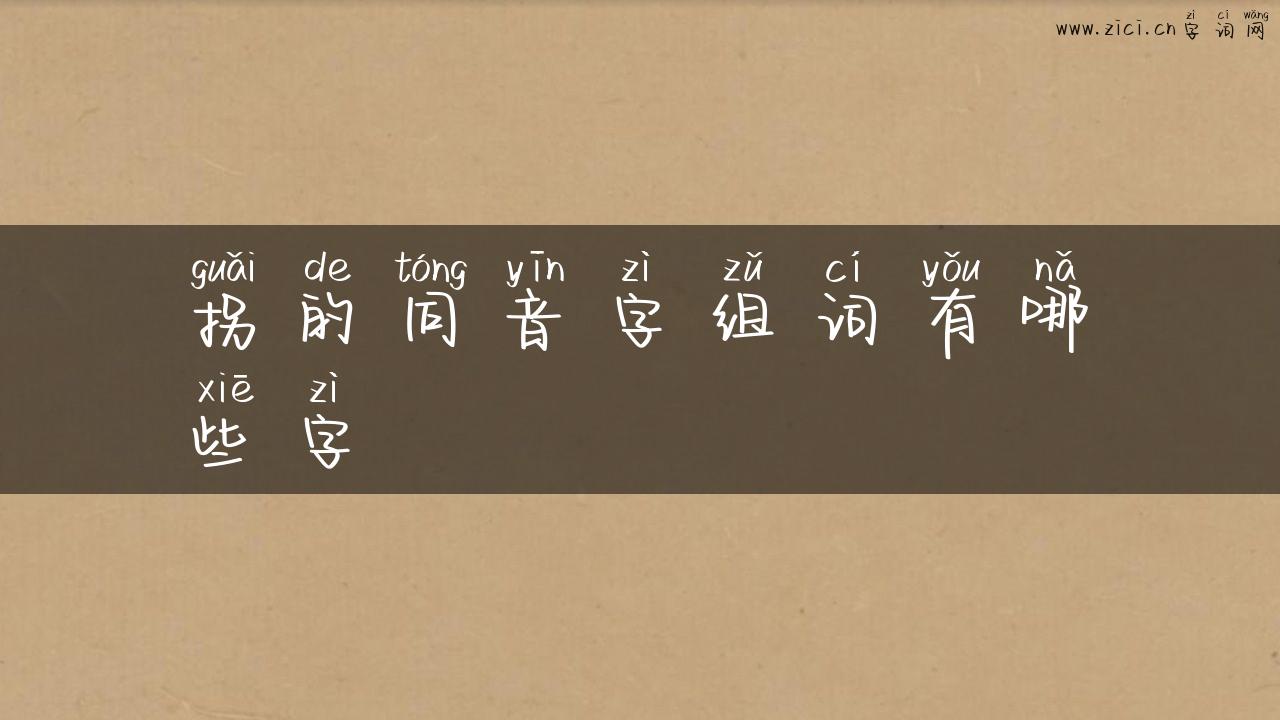 zì cí wǎng
www.zici.cn 字 词 网
guǎi de tóng yīn zì zǔ cí yǒu nǎ
拐 的 同 音 字 组 词 有 哪
xiē zì
些 字